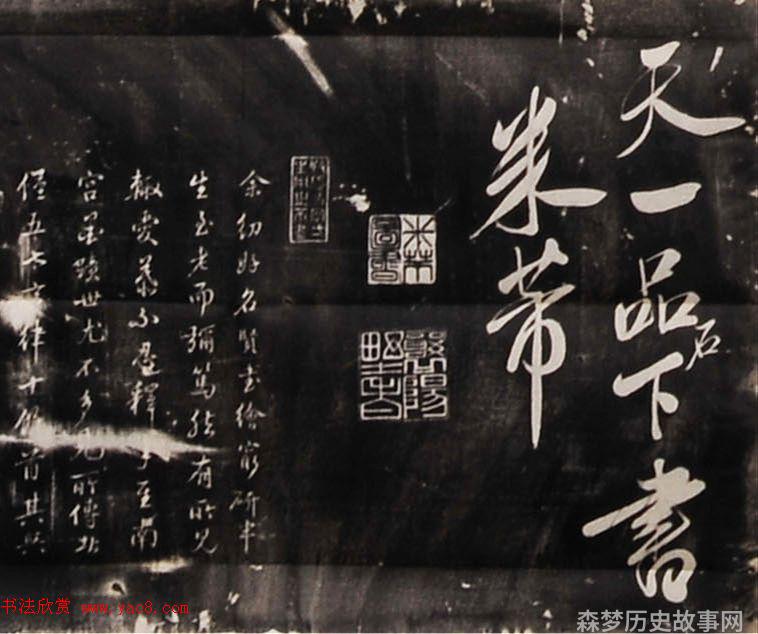 天一品石下書
米芾
米芾
襄陽
余幼好名賢書繪窮研半
生至老而彌篤然有所見
輒愛慕不忍釋手至南
宮墨蹟世尤不多見所傳
僅五七言律十餘首其
书法欣赏 www.yac8.com
森梦历史故事网